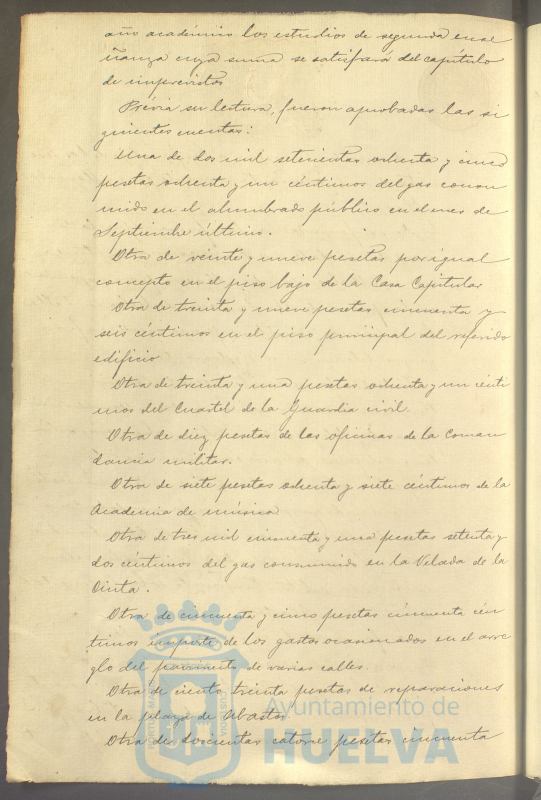 año académico los estudios de segunda ense
ñanza cuya suma se satisfará del capítulo
de imprevistos
Prévia su lectura, fueron aprobadas las si
guientes cuentas:
Una de dos mil setecientas ochenta y cinco
pesetas ochenta y un céntimos del gas consu
mido en el alumbrado público en el mes de
Septiembre último.
Otra de veinte y nueve pesetas por igual
concepto en el piso bajo de la Casa Capitular
Otra de treinta y nueve pesetas cincuenta y
seis céntimos en el piso principal del referido
edificio
Otra de treinta y una pesetas ochenta y un cénti
mos del Cuartel de la Guardia civil
Otra de diez pesetas de las oficinas de la Coman
dancia militar.
Otra de siete pesetas ochenta y siete céntimos de la
Academia de música
Otra de tres mil cincuenta y una pesetas setenta y
dos céntimos del gas consumido en la Velada de la
Cinta.
Otra de cincuenta y cinco pesetas cincuenta cén
timos importe de los gastos ocasionados en el arre
glo del pavimento de varias calles.
Otra de ciento treinta pesetas de reparaciones
en la plaza de Abastos.
Otra de doscientas catorce pesetas cincuenta
Ayuntamiento de
HUELVA